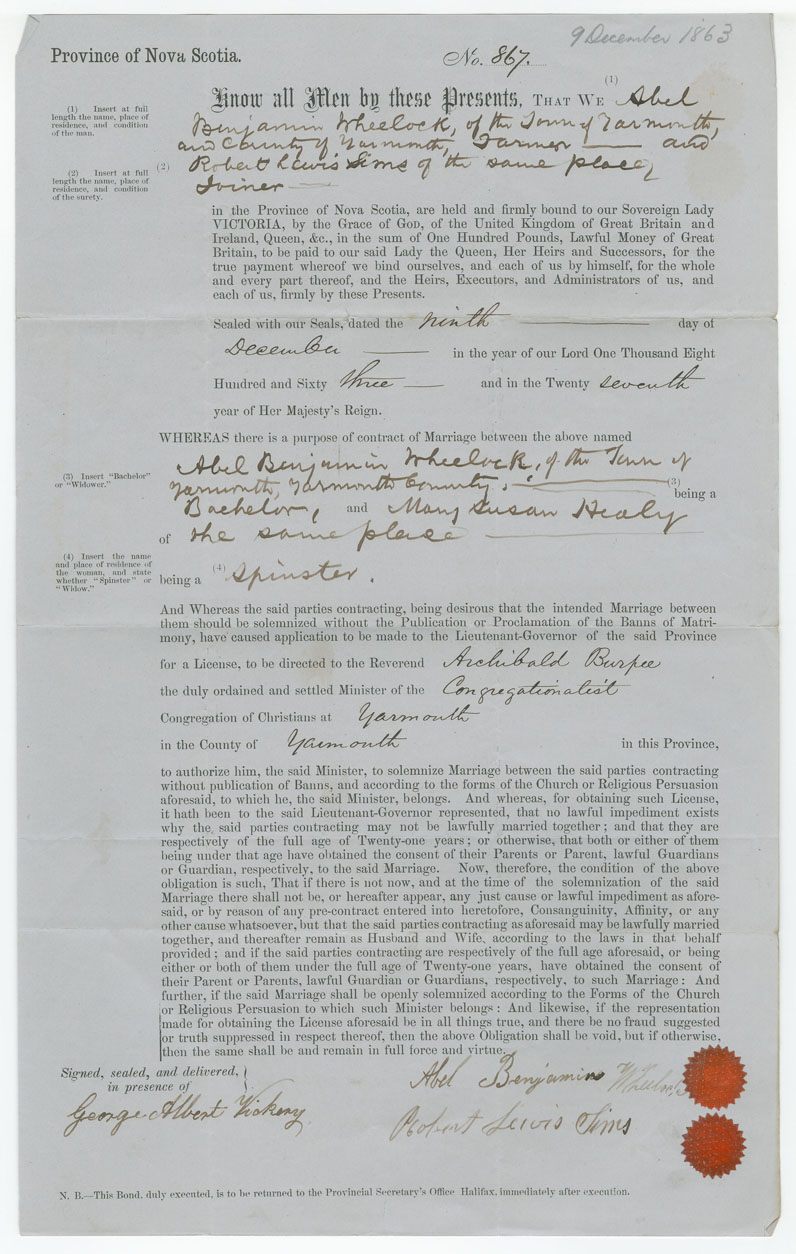 9 December 1863
Province of Nova Scotia.
No. 867.
(1) Insert at full length the name, place of residence, and condition of the man.
Know all Men by these Presents, THAT WE (1) Abel
Benjamin Wheelock, of the Town of Yarmouth,
and County of Yarmouth, Farmer — and
(2) Insert at full length the name, place of residence, and condition of the surety.
(2) Robert Lewis Sims of the same place,
Joiner —
in the Province of Nova Scotia, are held and firmly bound to our Sovereign Lady
VICTORIA, by the Grace of GOD, of the United Kingdom of Great Britain and
Ireland, Queen, &c., in the sum of One Hundred Pounds, Lawful Money of Great
Britain, to be paid to our said Lady the Queen, Her Heirs and Successors, for the
true payment whereof we bind ourselves, and each of us by himself, for the whole
and every part thereof, and the Heirs, Executors, and Administrators of us, and
each of us, firmly by these Presents.
Sealed with our Seals, dated the ninth — day of
December — in the year of our Lord One Thousand Eight
Hundred and Sixty three — and in the Twenty seventh
year of Her Majesty's Reign.
WHEREAS there is a purpose of contract of Marriage between the above named
Abel Benjamin Wheelock, of the Town of
(3) Insert "Bachelor" or "Widower."
Yarmouth, Yarmouth County, — (3) being a
Bachelor, and Mary Susan Healy
of the same place —
(4) Insert the name and place of residence of the woman, and state whether "Spinster" or "Widow."
being a (4) Spinster.
And Whereas the said parties contracting, being desirous that the intended Marriage between
them should be solemnized without the Publication or Proclamation of the Banns of Matri-
mony, have caused application to be made to the Lieutenant-Governor of the said Province
for a License, to be directed to the Reverend Archibald Burpee
the duly ordained and settled Minister of the Congregationalist
Congregation of Christians at Yarmouth
in the County of Yarmouth in this Province,
to authorize him, the said Minister, to solemnize Marriage between the said parties contracting
without publication of Banns, and according to the forms of the Church or Religious Persuasion
aforesaid, to which he, the said Minister, belongs. And whereas, for obtaining such License,
it hath been to the said Lieutenant-Governor represented, that no lawful impediment exists
why the said parties contracting may not be lawfully married together; and that they are
respectively of the full age of Twenty-one years; or otherwise, that both or either of them
being under that age have obtained the consent of their Parents or Parent, lawful Guardians
or Guardian, respectively, to the said Marriage. Now, therefore, the condition of the above
obligation is such, That if there is not now, and at the time of the solemnization of the said
Marriage there shall not be, or hereafter appear, any just cause or lawful impediment as afore-
said, or by reason of any pre-contract entered into heretofore, Consanguinity, Affinity, or any
other cause whatsoever, but that the said parties contracting as aforesaid may be lawfully married
together, and thereafter remain as Husband and Wife, according to the laws in that behalf
provided; and if the said parties contracting are respectively of the full age aforesaid, or being
either or both of them under the full age of Twenty-one years, have obtained the consent of
their Parent or Parents, lawful Guardian or Guardians, respectively, to such Marriage: And
further, if the said Marriage shall be openly solemnized according to the Forms of the Church
or Religious Persuasion to which such Minister belongs: And likewise, if the representation
made for obtaining the License aforesaid be in all things true, and there be no fraud suggested
or truth suppressed in respect thereof, then the above Obligation shall be void, but if otherwise,
then the same shall be and remain in full force and virtue.
Signed, sealed, and delivered,
in presence of
George Albert Vickery
Abel Benjamin Wheelock
Robert Lewis Sims
N. B.—This Bond, duly executed, is to be returned to the Provincial Secretary's Office Halifax, immediately after execution.